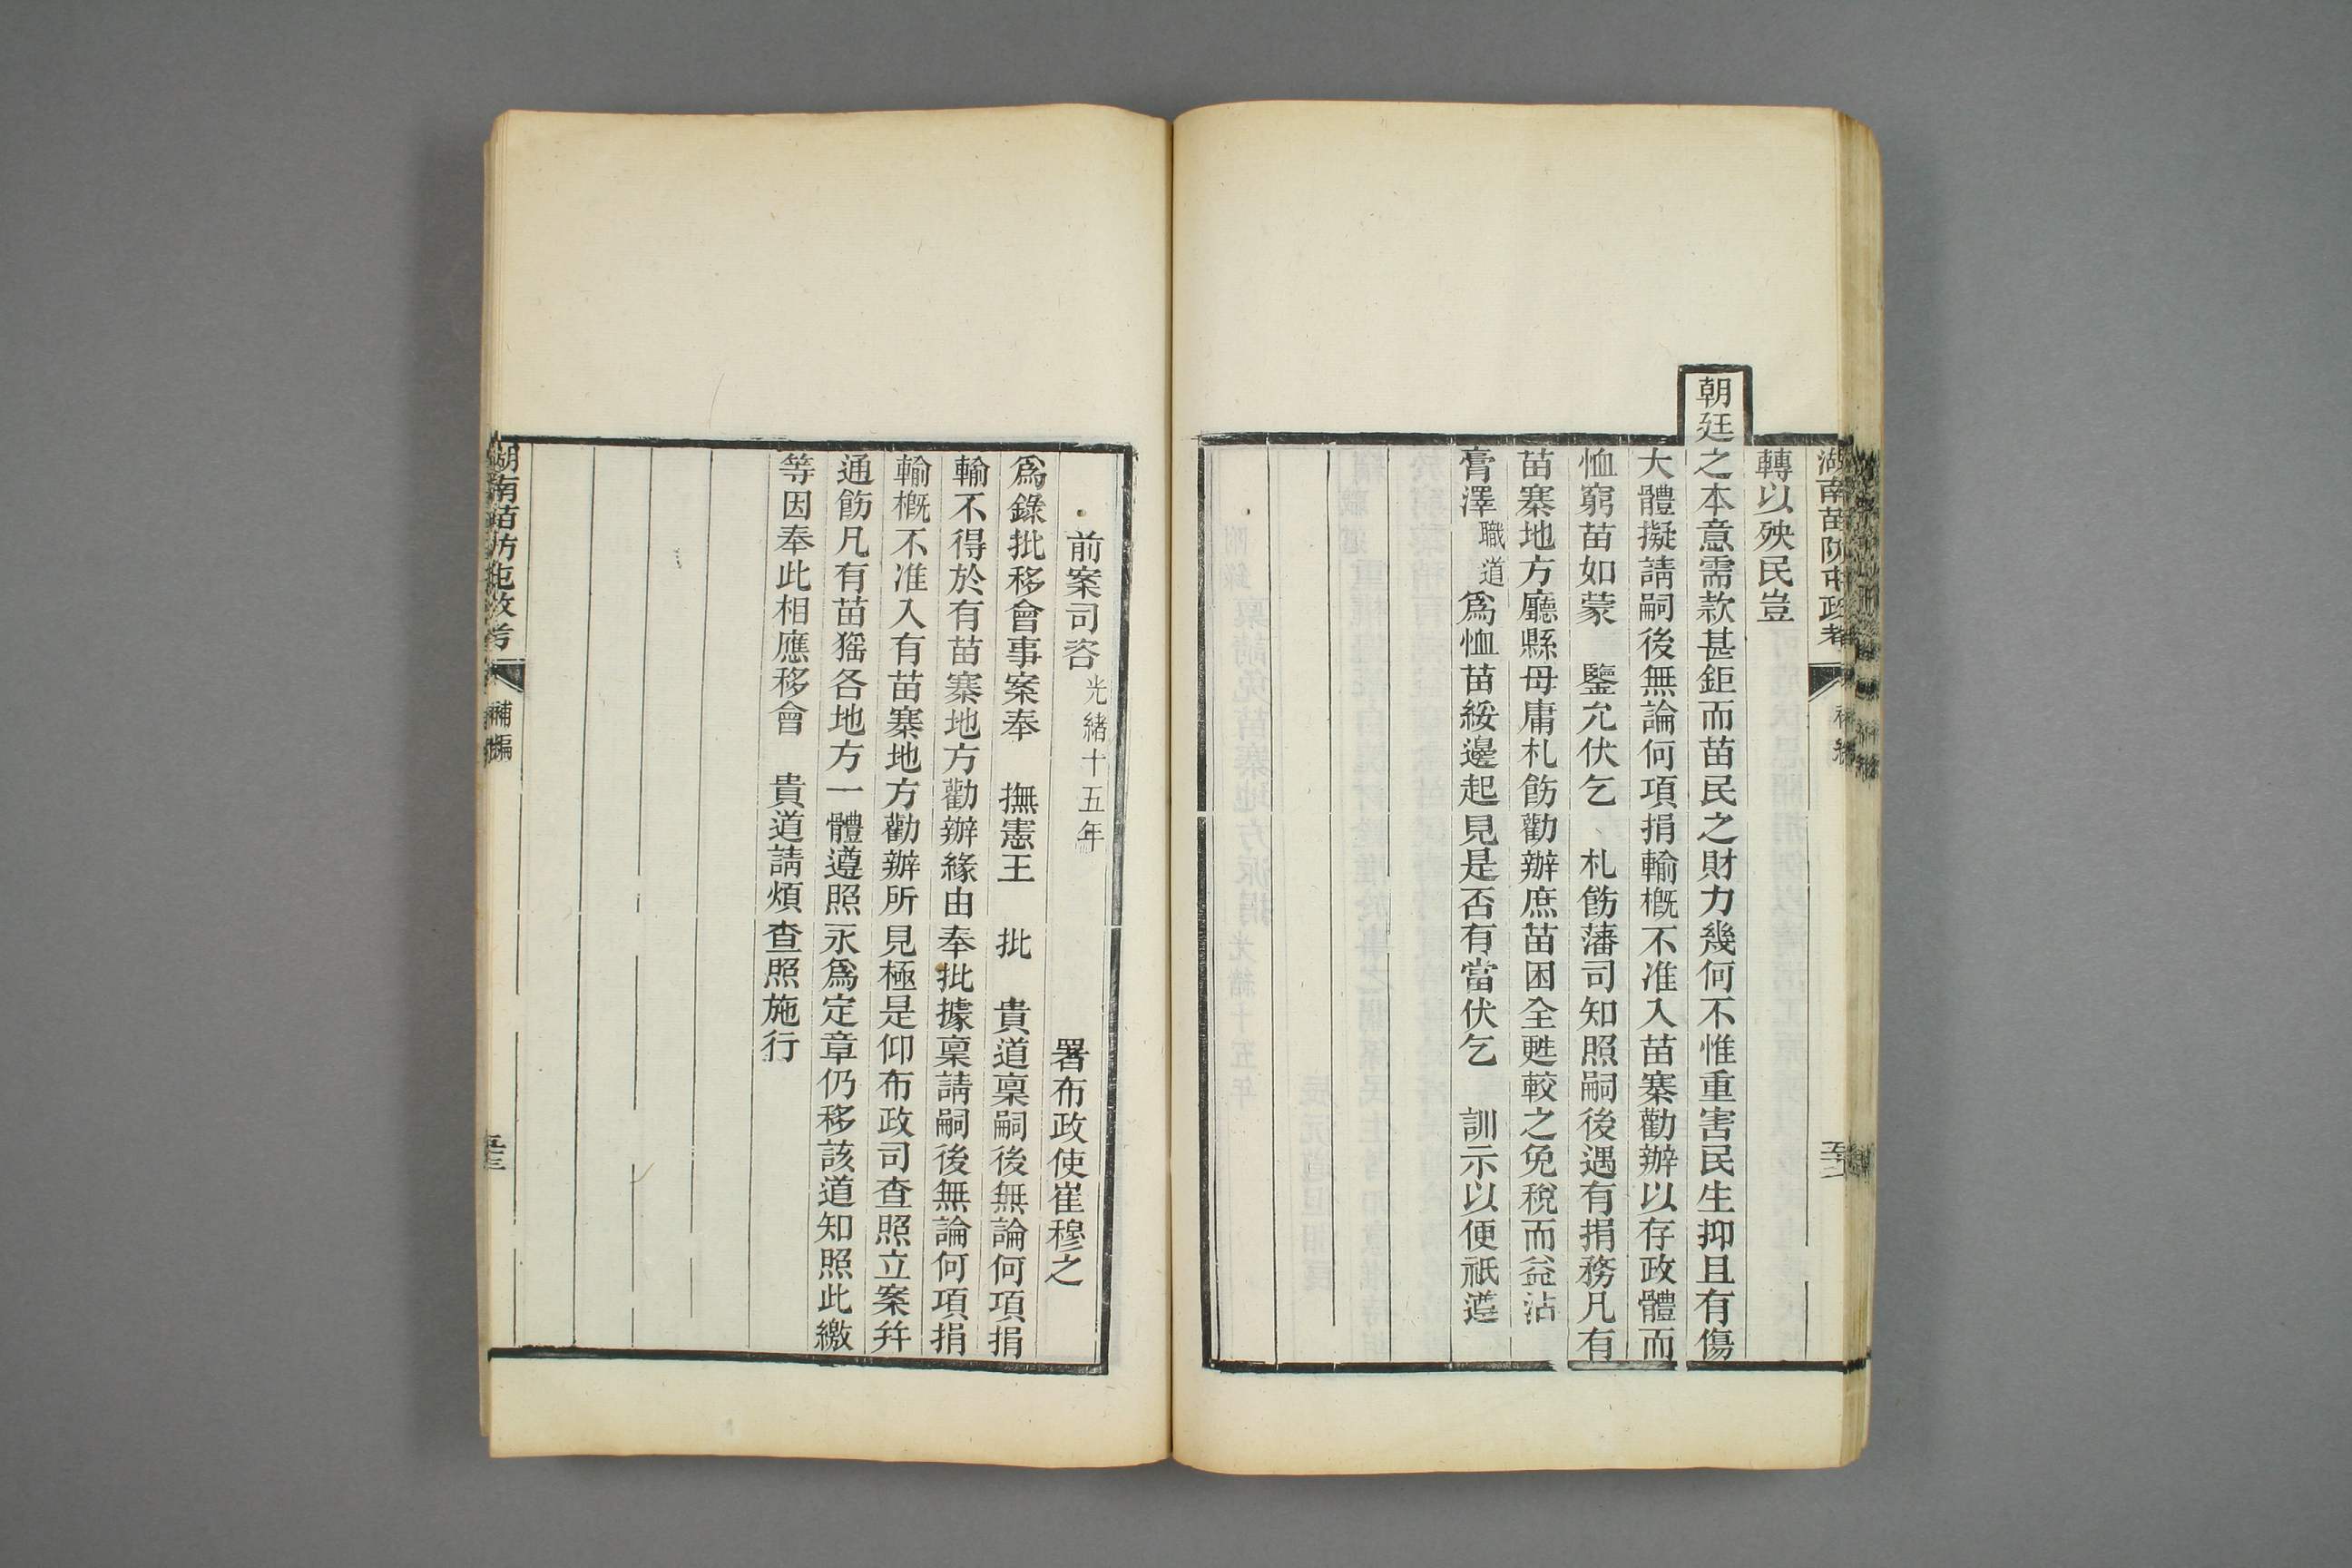 湖南苗防屯政考 補編
轉以殃民豈
朝廷之本意需款甚鉅而苗民之財力幾何不惟重害民生抑且有傷
大體擬請嗣後無論何項捐輸概不准入苗寨勸辦以存政體而
恤窮苗如蒙 鑒允伏乞 札飭藩司知照嗣後遇有捐務凡有
苗寨地方廳縣毋庸札飭勸辦庶苗困全甦較之免稅而益沾
膏澤職道爲恤苗綏邊起見是否有當伏乞 訓示以便祇遵
前案司咨光緒十五年 署布政使崔穆之
爲錄批移會事案奉 撫憲王 批 貴道稟嗣後無論何項捐
輸不得於有苗寨地方勸辦緣由奉批據稟請嗣後無論何項捐
輸概不准入有苗寨地方勸辦所見極是仰布政司查照立案并
通飭凡有苗猺各地方一體遵照永爲定章仍移該道知照此繳
等因奉此相應移會 貴道請煩查照施行
湖南苗防屯政考 補編 五三